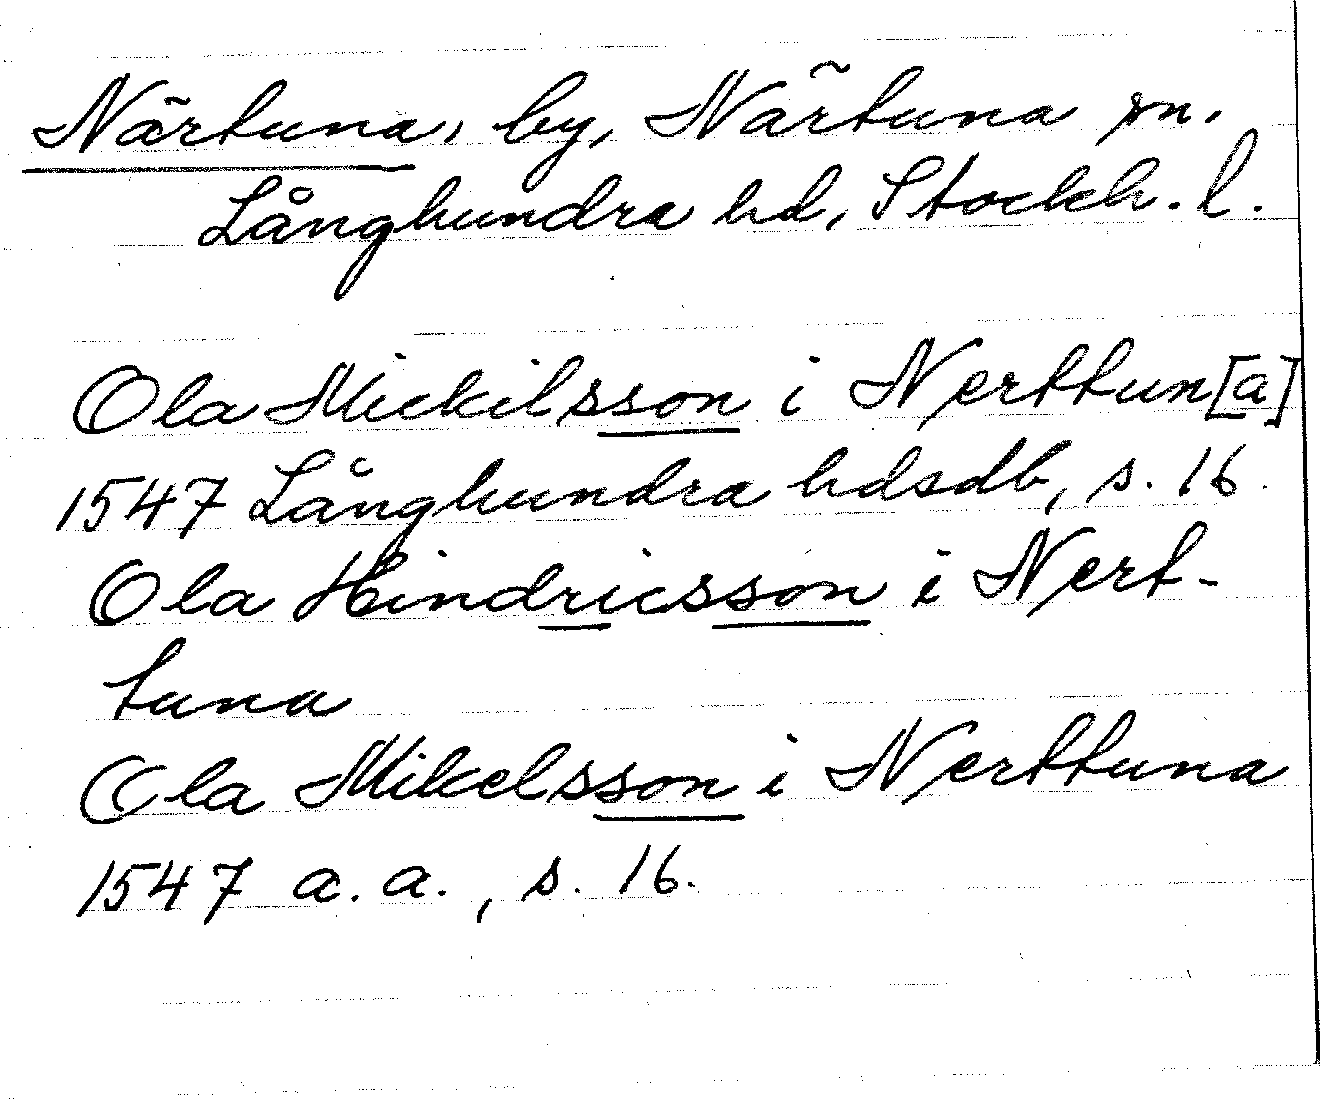 Närtuna, by, Närtuna sn.
Långhundra hd, Stockh. l.
Ola Mickilsson i Nerttun[a]
1547 Långhundra hdsdb, s. 16.
Ola Hindricsson i Nert-
tuna
Ola Mikelsson i Nerttuna
1547 a. a., s. 16.